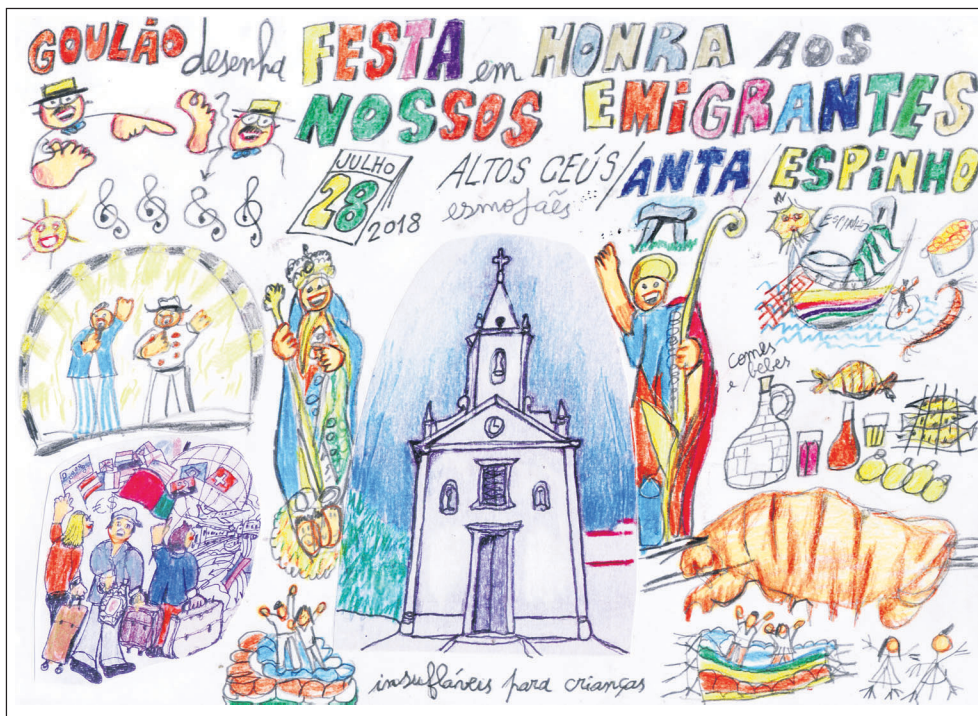 GOULÃO desenha FESTA em HONRA AOS
NOSSOS EMiGRANTES
JULHO
28
2018
ALTOS CEÚS/ANTA/ESPiNHO
esmojães
ESPINHO
comes
e bebes
insufláveis para crianças